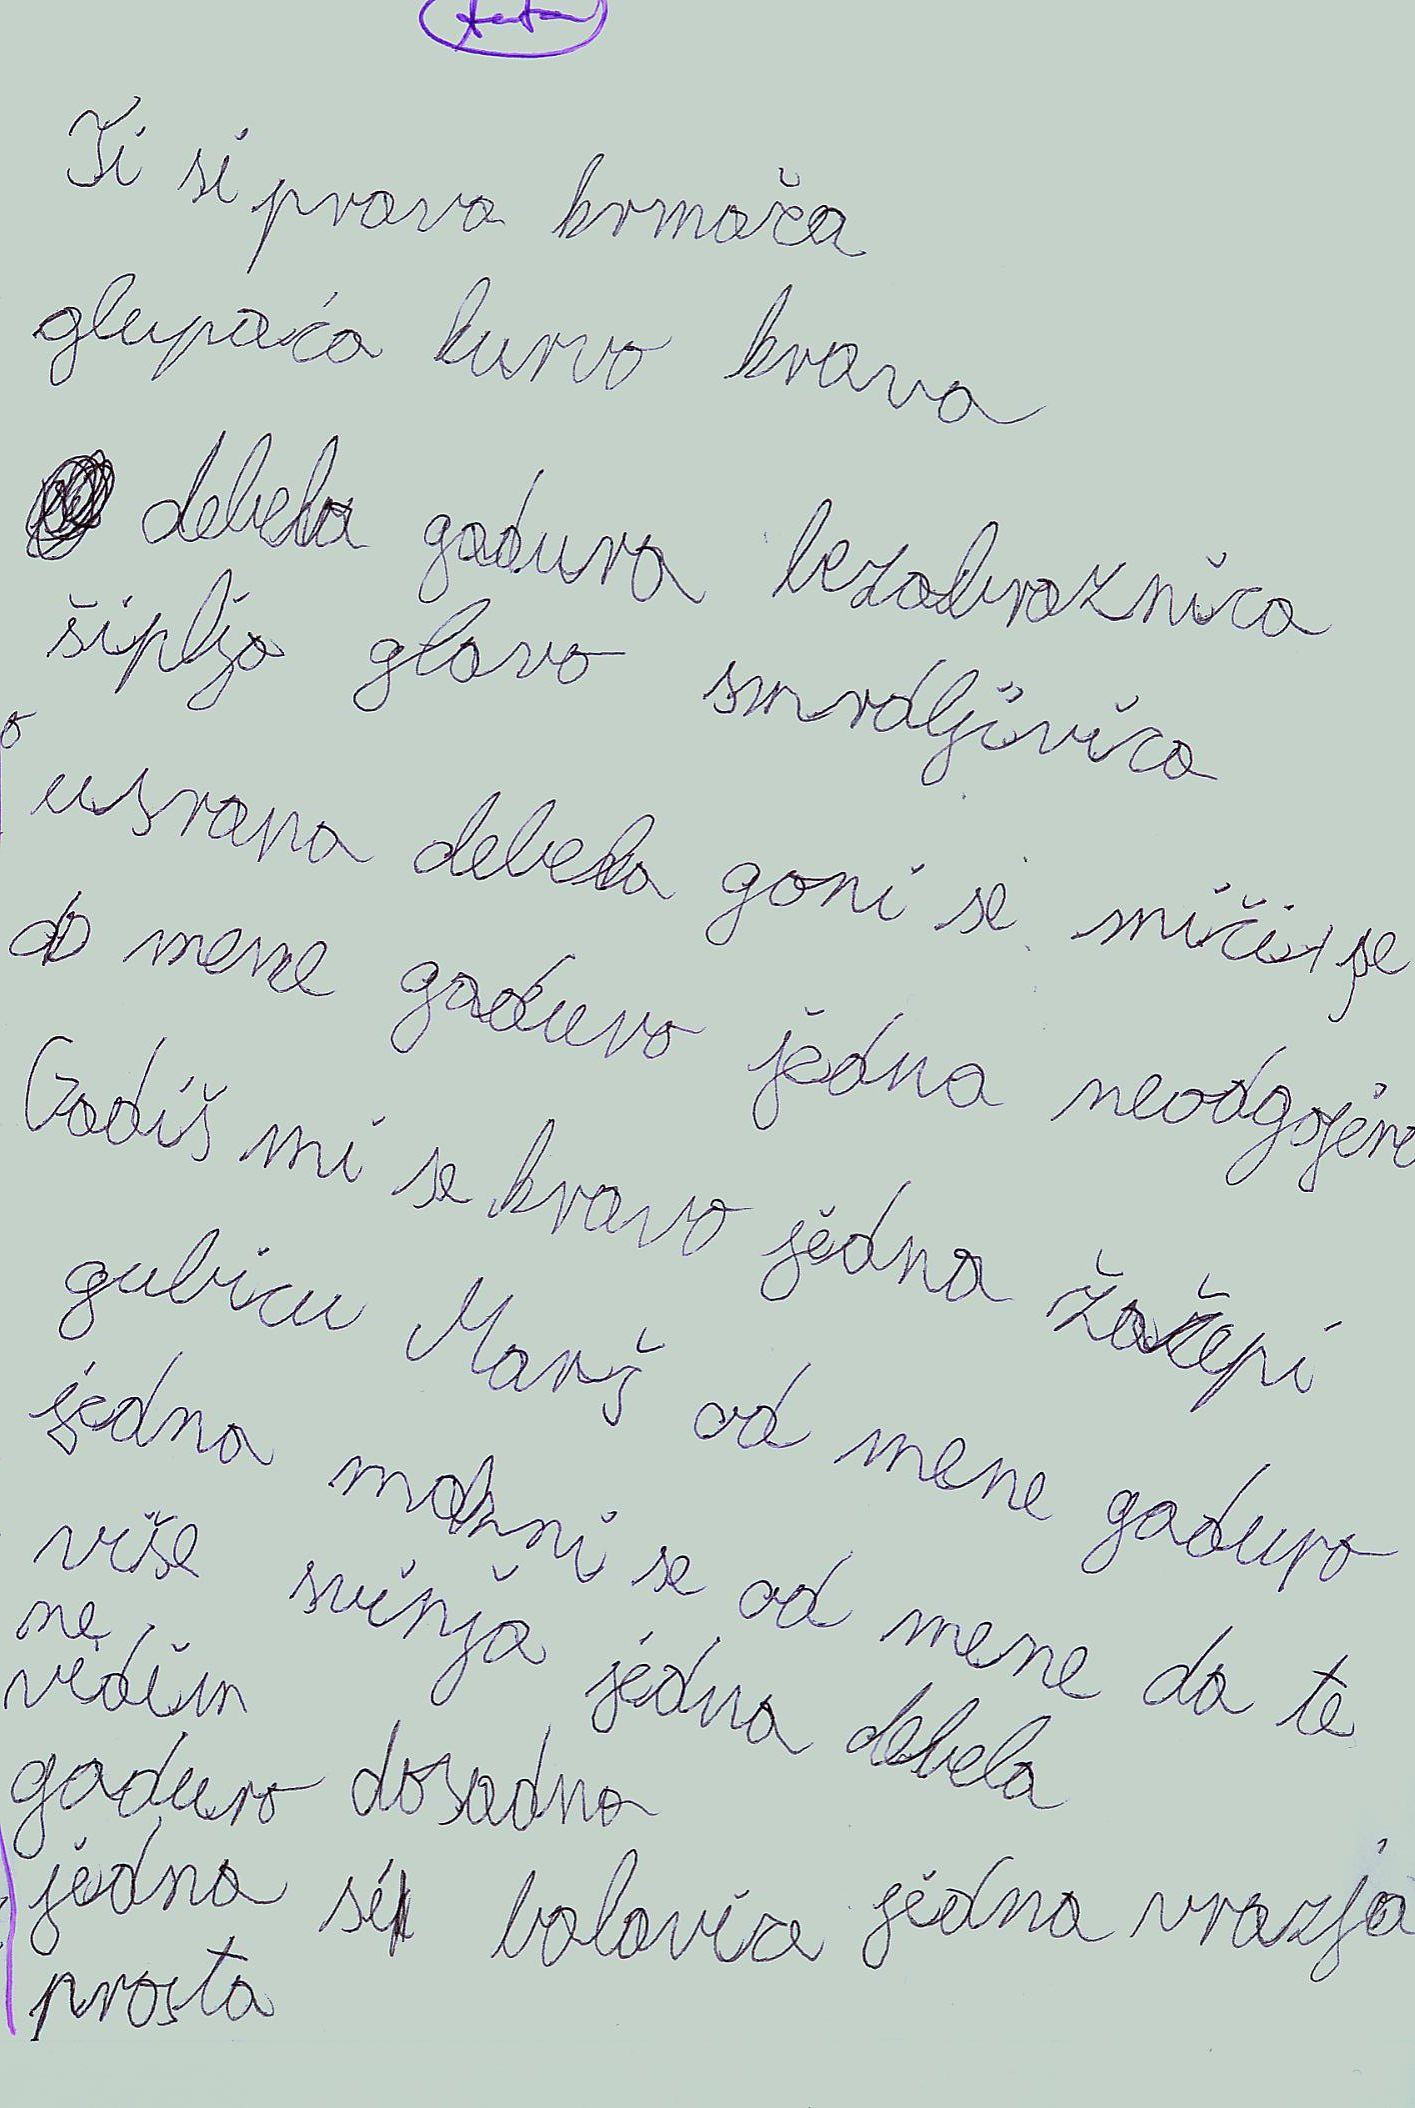 Ti si prava krmača
glupaća kurvo krava
debela gadura bezobraznica
šiplja glavo smrdljivica
usrana debela goni se mičič se
od mene gaduro jedna neodgojena
Gadiš mi se kravo jedna začepi
gubicu Marš od mene gaduro
jedna makni se od mene da te
više svinja jedna debela
ne
vidim
gaduro dosadna
jedna balavica jedna vrazja
prosta